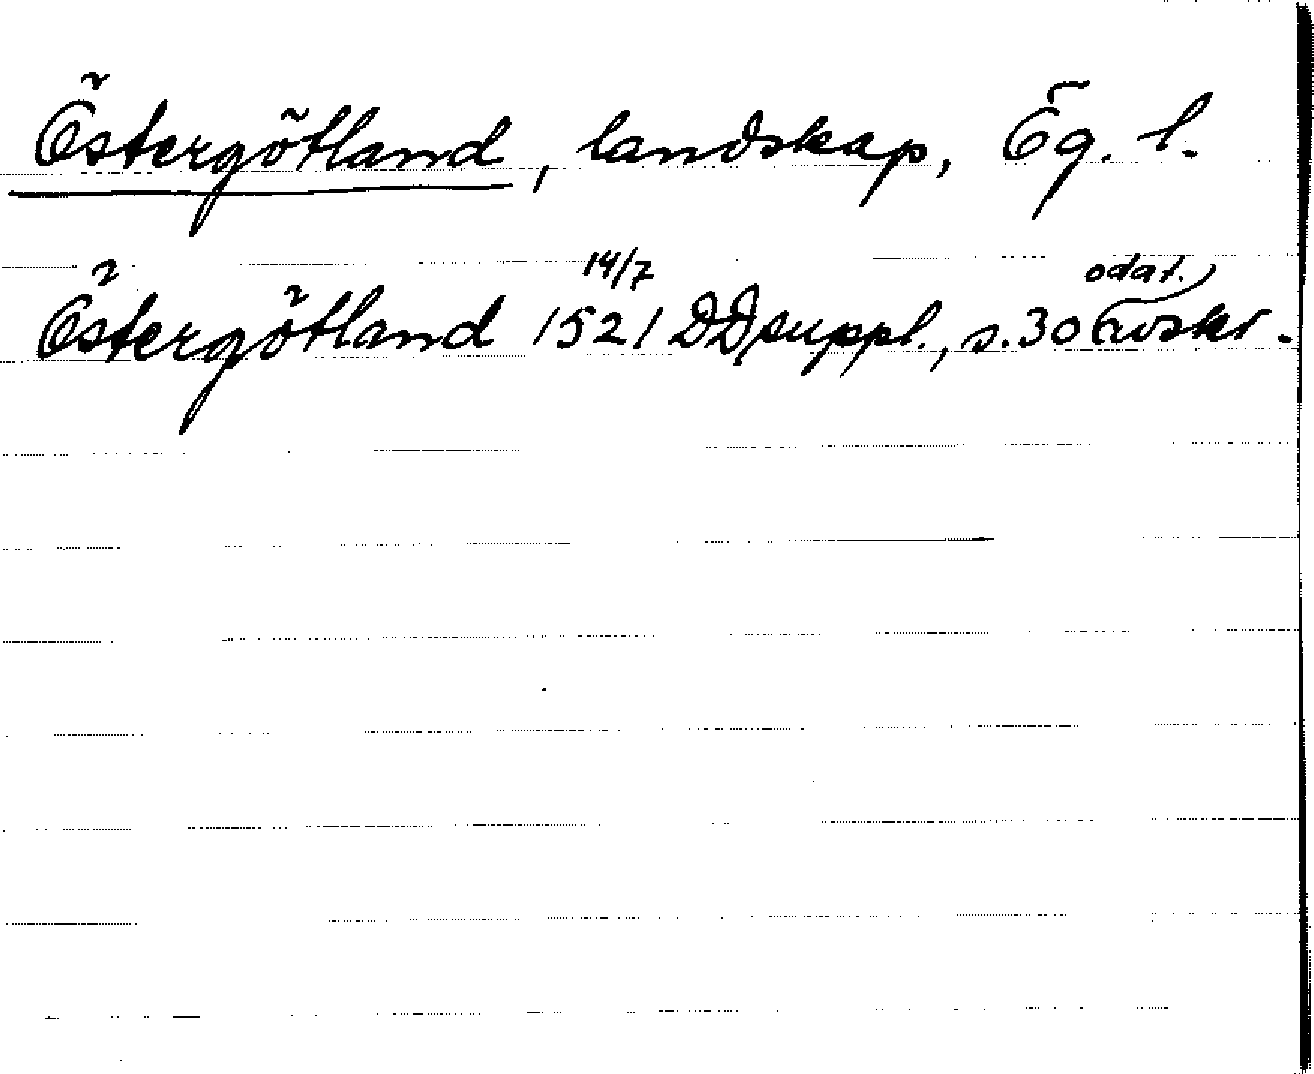 Östergötland, landskap, Ög. l.
Östergötland 14/7 1521 DD suppl., s. 30 odat. avskr.